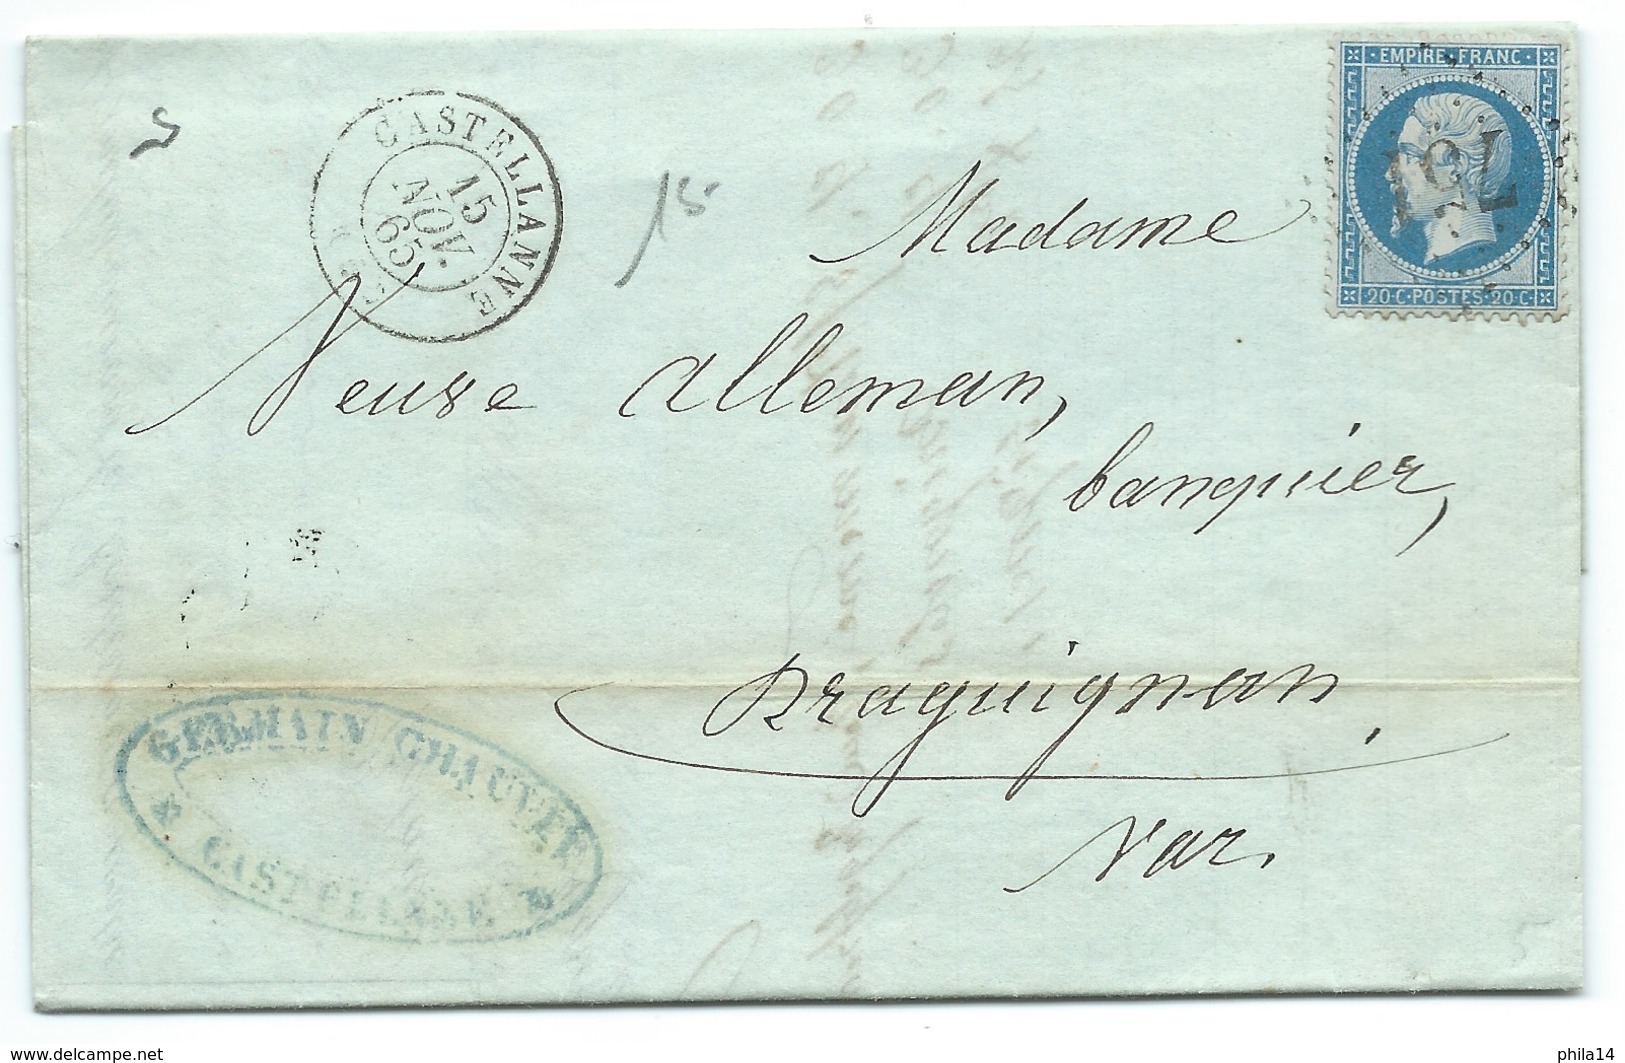 EMPIRE FRANC
751
20·C·POSTES·20·C
CASTELLANNE
15
NOV.
65
15
Madame
Veuve Alleman,
banquier,
Draguignan
Var.
GERMAIN CHAUVIN
CASTELLANE
5
www.delcampe.net
phila14